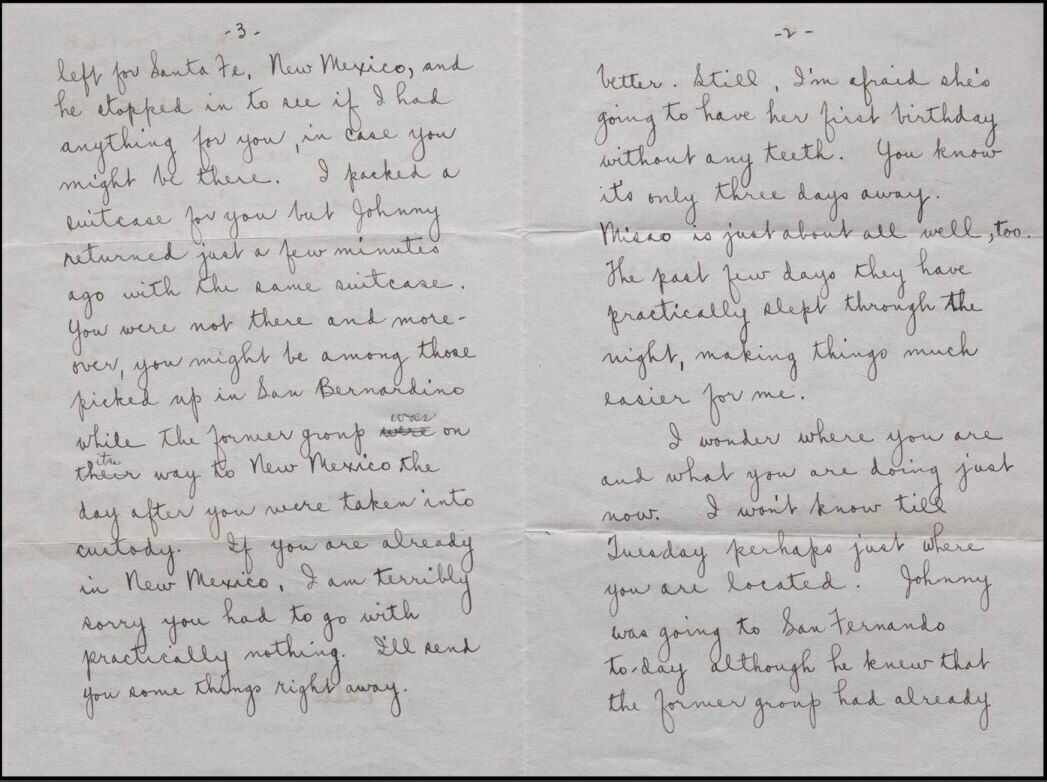 -2-
better. Still, I'm afraid she's
going to have her first birthday
without any teeth. You know
it's only three days away.
Misao is just about all well, too.
The past few days they have
practically slept through the
night, making things much
easier for me.
I wonder where you are
and what you are doing just
now. I won't know till
Tuesday perhaps just where
you are located. Johnny
was going to San Fernando
to-day although he knew that
the former group had already
-3-
left for Santa Fe, New Mexico, and
he stopped in to see if I had
anything for you, in case you
might be there. I packed a
suitcase for you but Johnny
returned just a few minutes
ago with the same suitcase.
You were not there and more-
over, you might be among those
picked up in San Bernardino
while the former group were was on
their its way to New Mexico the
day after you were taken into
custody. If you are already
in New Mexico, I am terribly
sorry you had to go with
practically nothing. I'll send
you some things right away.